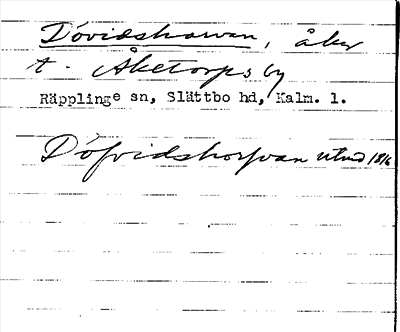 Dövidshorvan, åker
t. Åketorps by
Räpplinge sn, Slättbo hd, Kalm. l.
Döfvidshorfvan utmd 1816